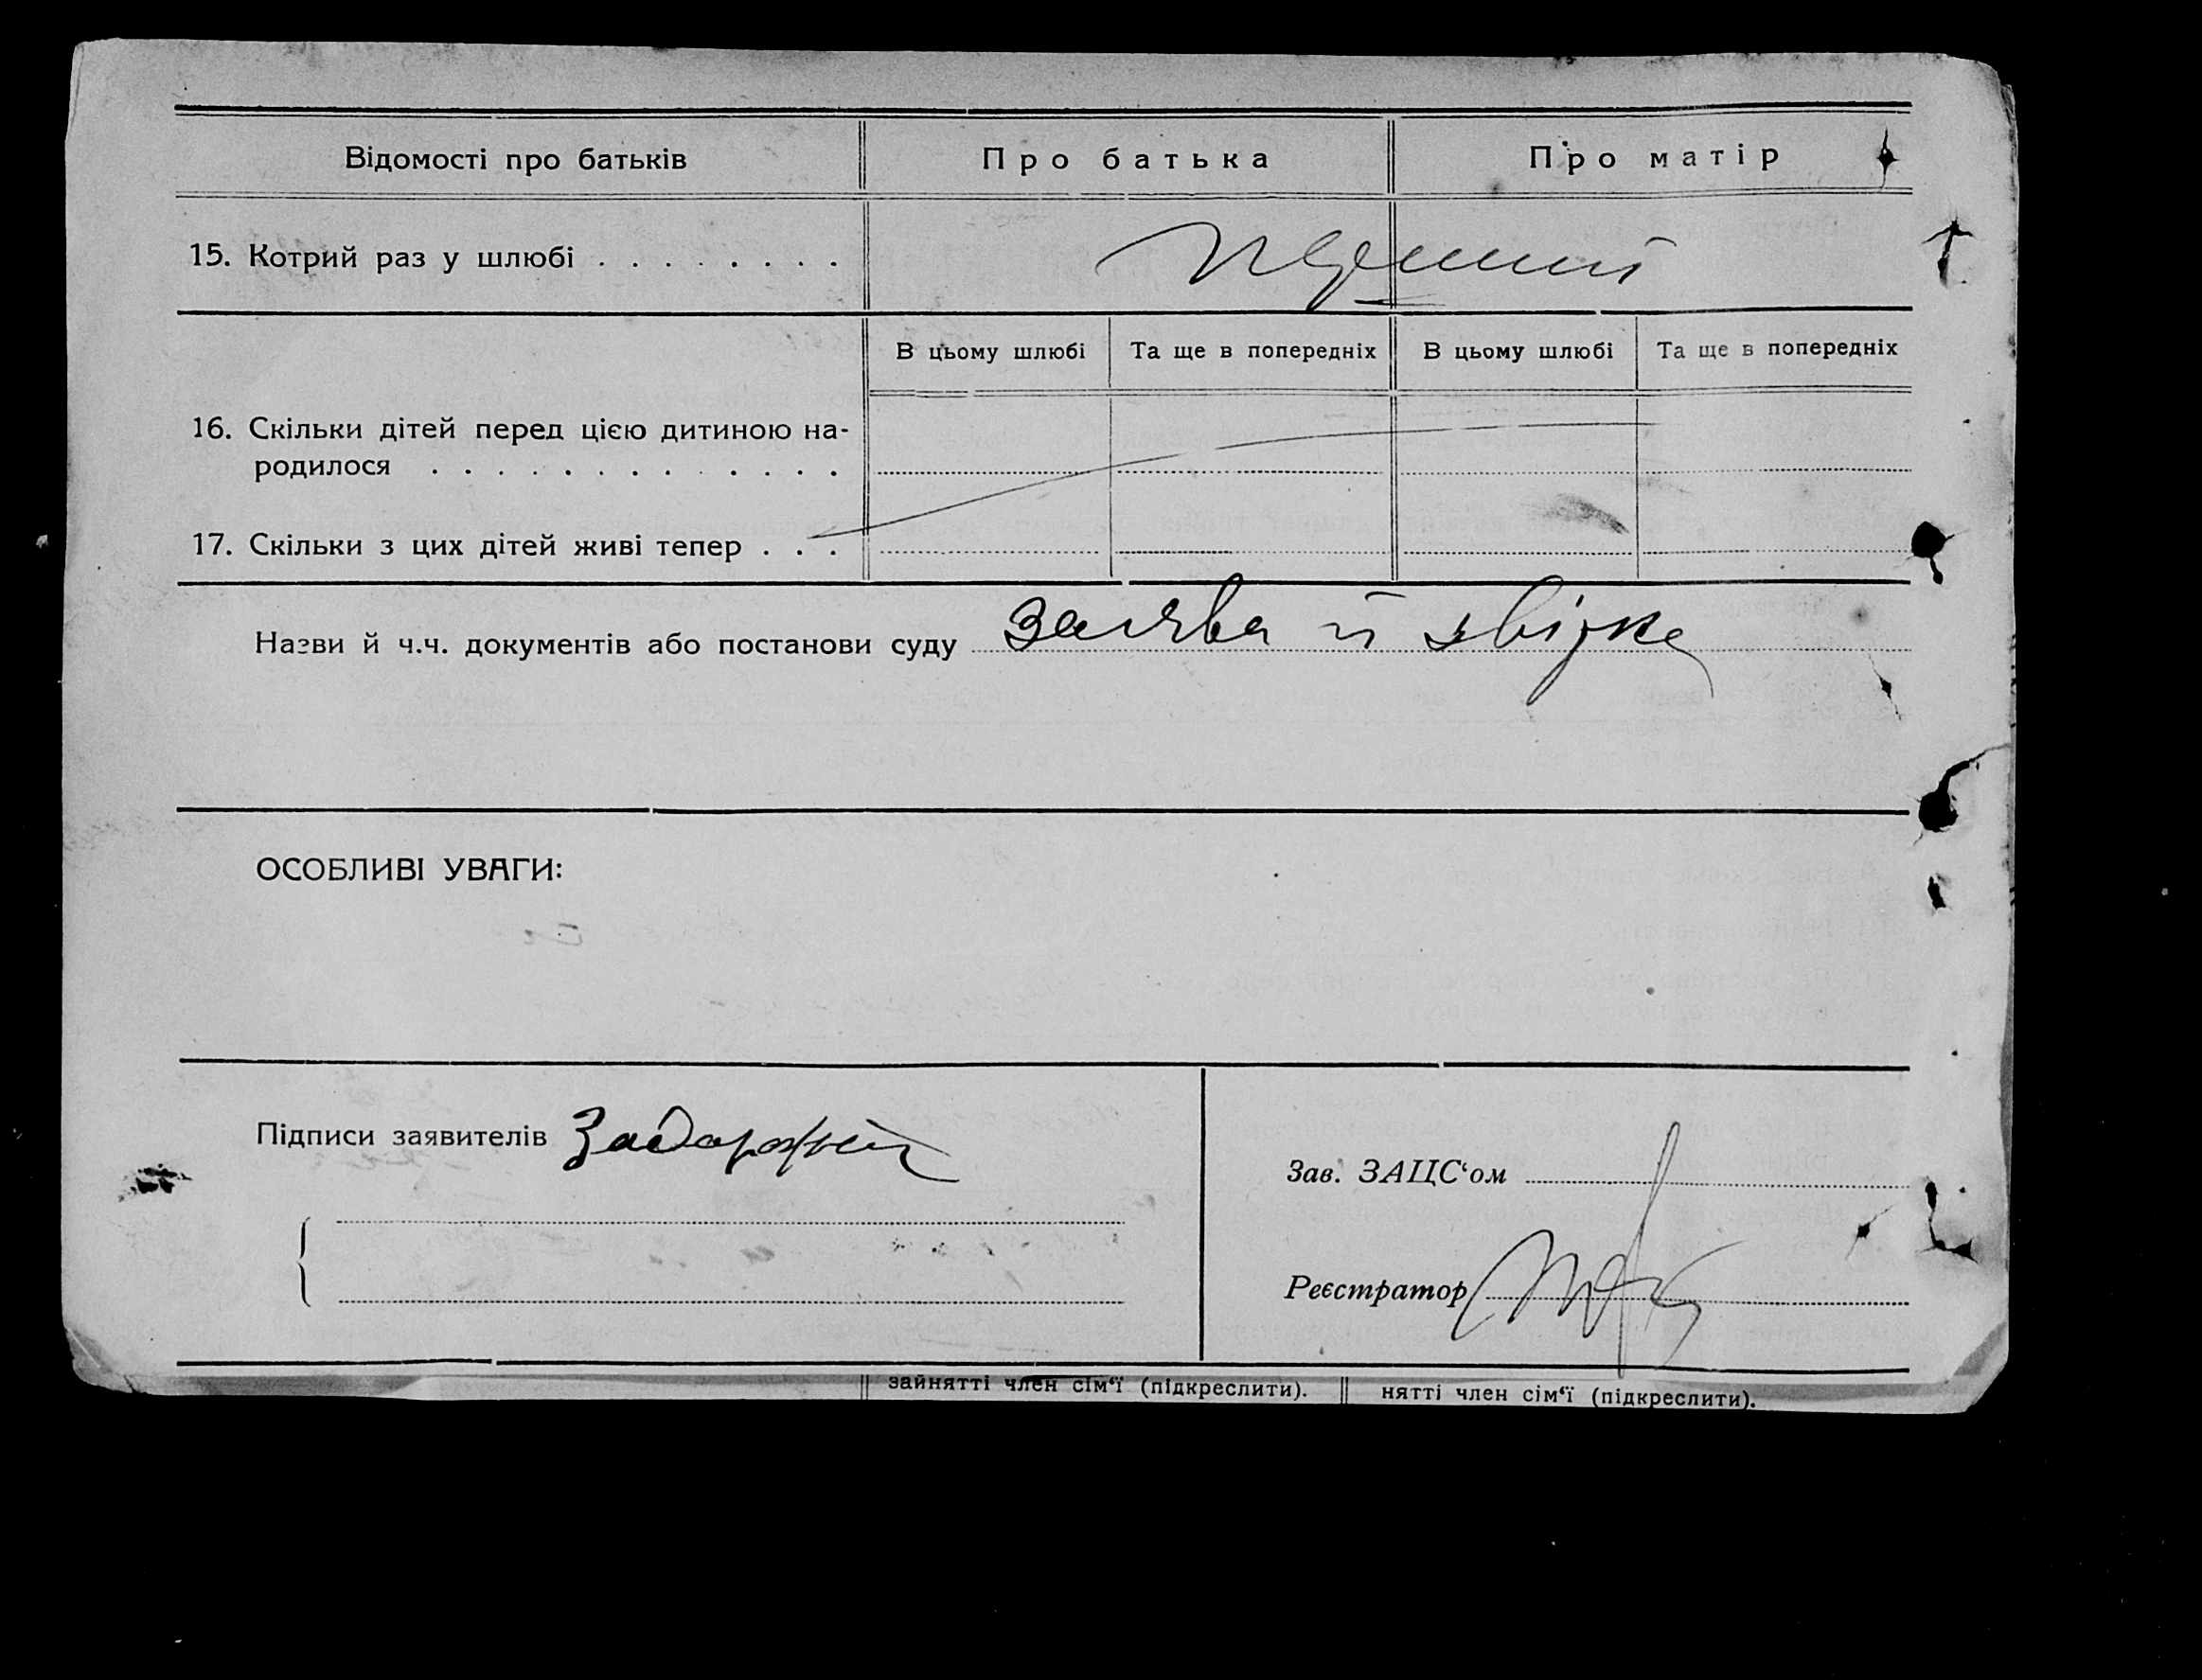 Відомості про батьків Про батька Про матір
15. Котрий раз у шлюбі . . . . . . . . перший
В цьому шлюбі Та ще в попередніх В цьому шлюбі Та ще в попередніх
16. Скільки дітей перед цією дитиною на-
родилося . . . . . . . . . . . . .
17. Скільки з цих дітей живі тепер . . .
Назви й ч.ч. документів або постанови суду заява й звідка
ОСОБЛИВІ УВАГИ:
Підписи заявителів Задорожній
Зав. ЗАЦС‘ом
Реєстратор
зайнятті член сім‘ї (підкреслити). нятті член сім‘ї (підкреслити).